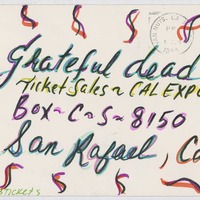 Grateful dead
Ticket Sales ~ CAL EXPO
Box ~ C ~ S ~ 8150
San Rafael, Ca
tickets